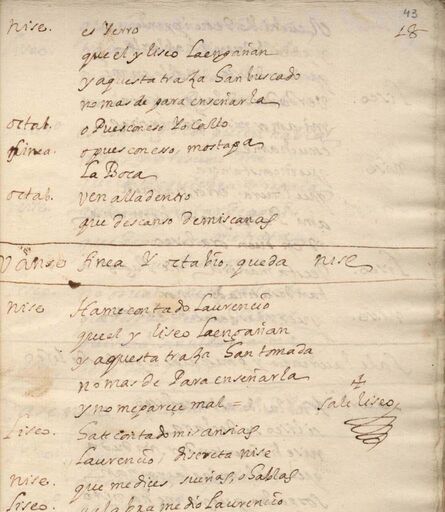 43
18
nise. es yerro
que el y liseo la engañan
y aquesta traza han buscado
no mas de para enseñarla
octab. o pues con eso yo callo
finea o pues con eso, mostapa
la Boca
octab. ven alla dentro
que descanso de mis canas
vanse finea y octabio, queda nise
nise Hame contado laurencio
que el y liseo la engañan
y aquesta traza han tomada
no mas de para enseñarla
y no me parece mal = sale liseo
liseo. hate contado mis ansias
laurencio, discreta nise
nise. que me dices, sueñas, o hablas
liseo. palabra me dio laurencio